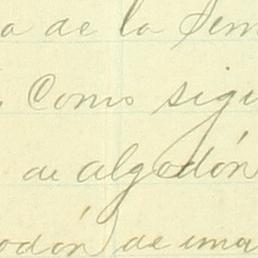 a de la Sem
Como sigu
de algodón
odón de una